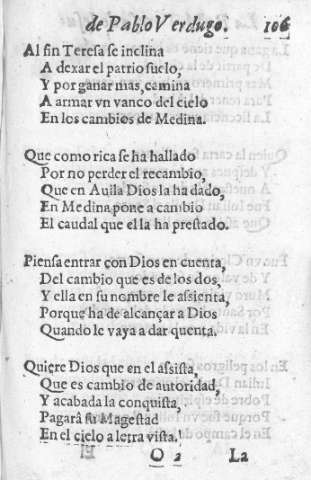 de Pablo Verdugo. 106
Al fin Teresa se inclina
A dexar el patrio suelo,
Y por ganar mas, camina
A armar vn vanco del cielo
En los cambios de Medina.
Que como rica se ha hallado
Por no perder el recambio,
Que en Auila Dios la ha dado,
En Medina pone a cambio
El caudal que el la ha prestado.
Piensa entrar con Dios en cuenta,
Del cambio que es de los dos,
Y ella en su nombre le assienta,
Porque ha de alcançar a Dios
Quando le vaya a dar quenta.
Quiere Dios que en el assista,
Que es cambio de autoridad,
Y acabada la conquista,
Pagarà su Magestad
En el cielo a letra vista.
O 2 La